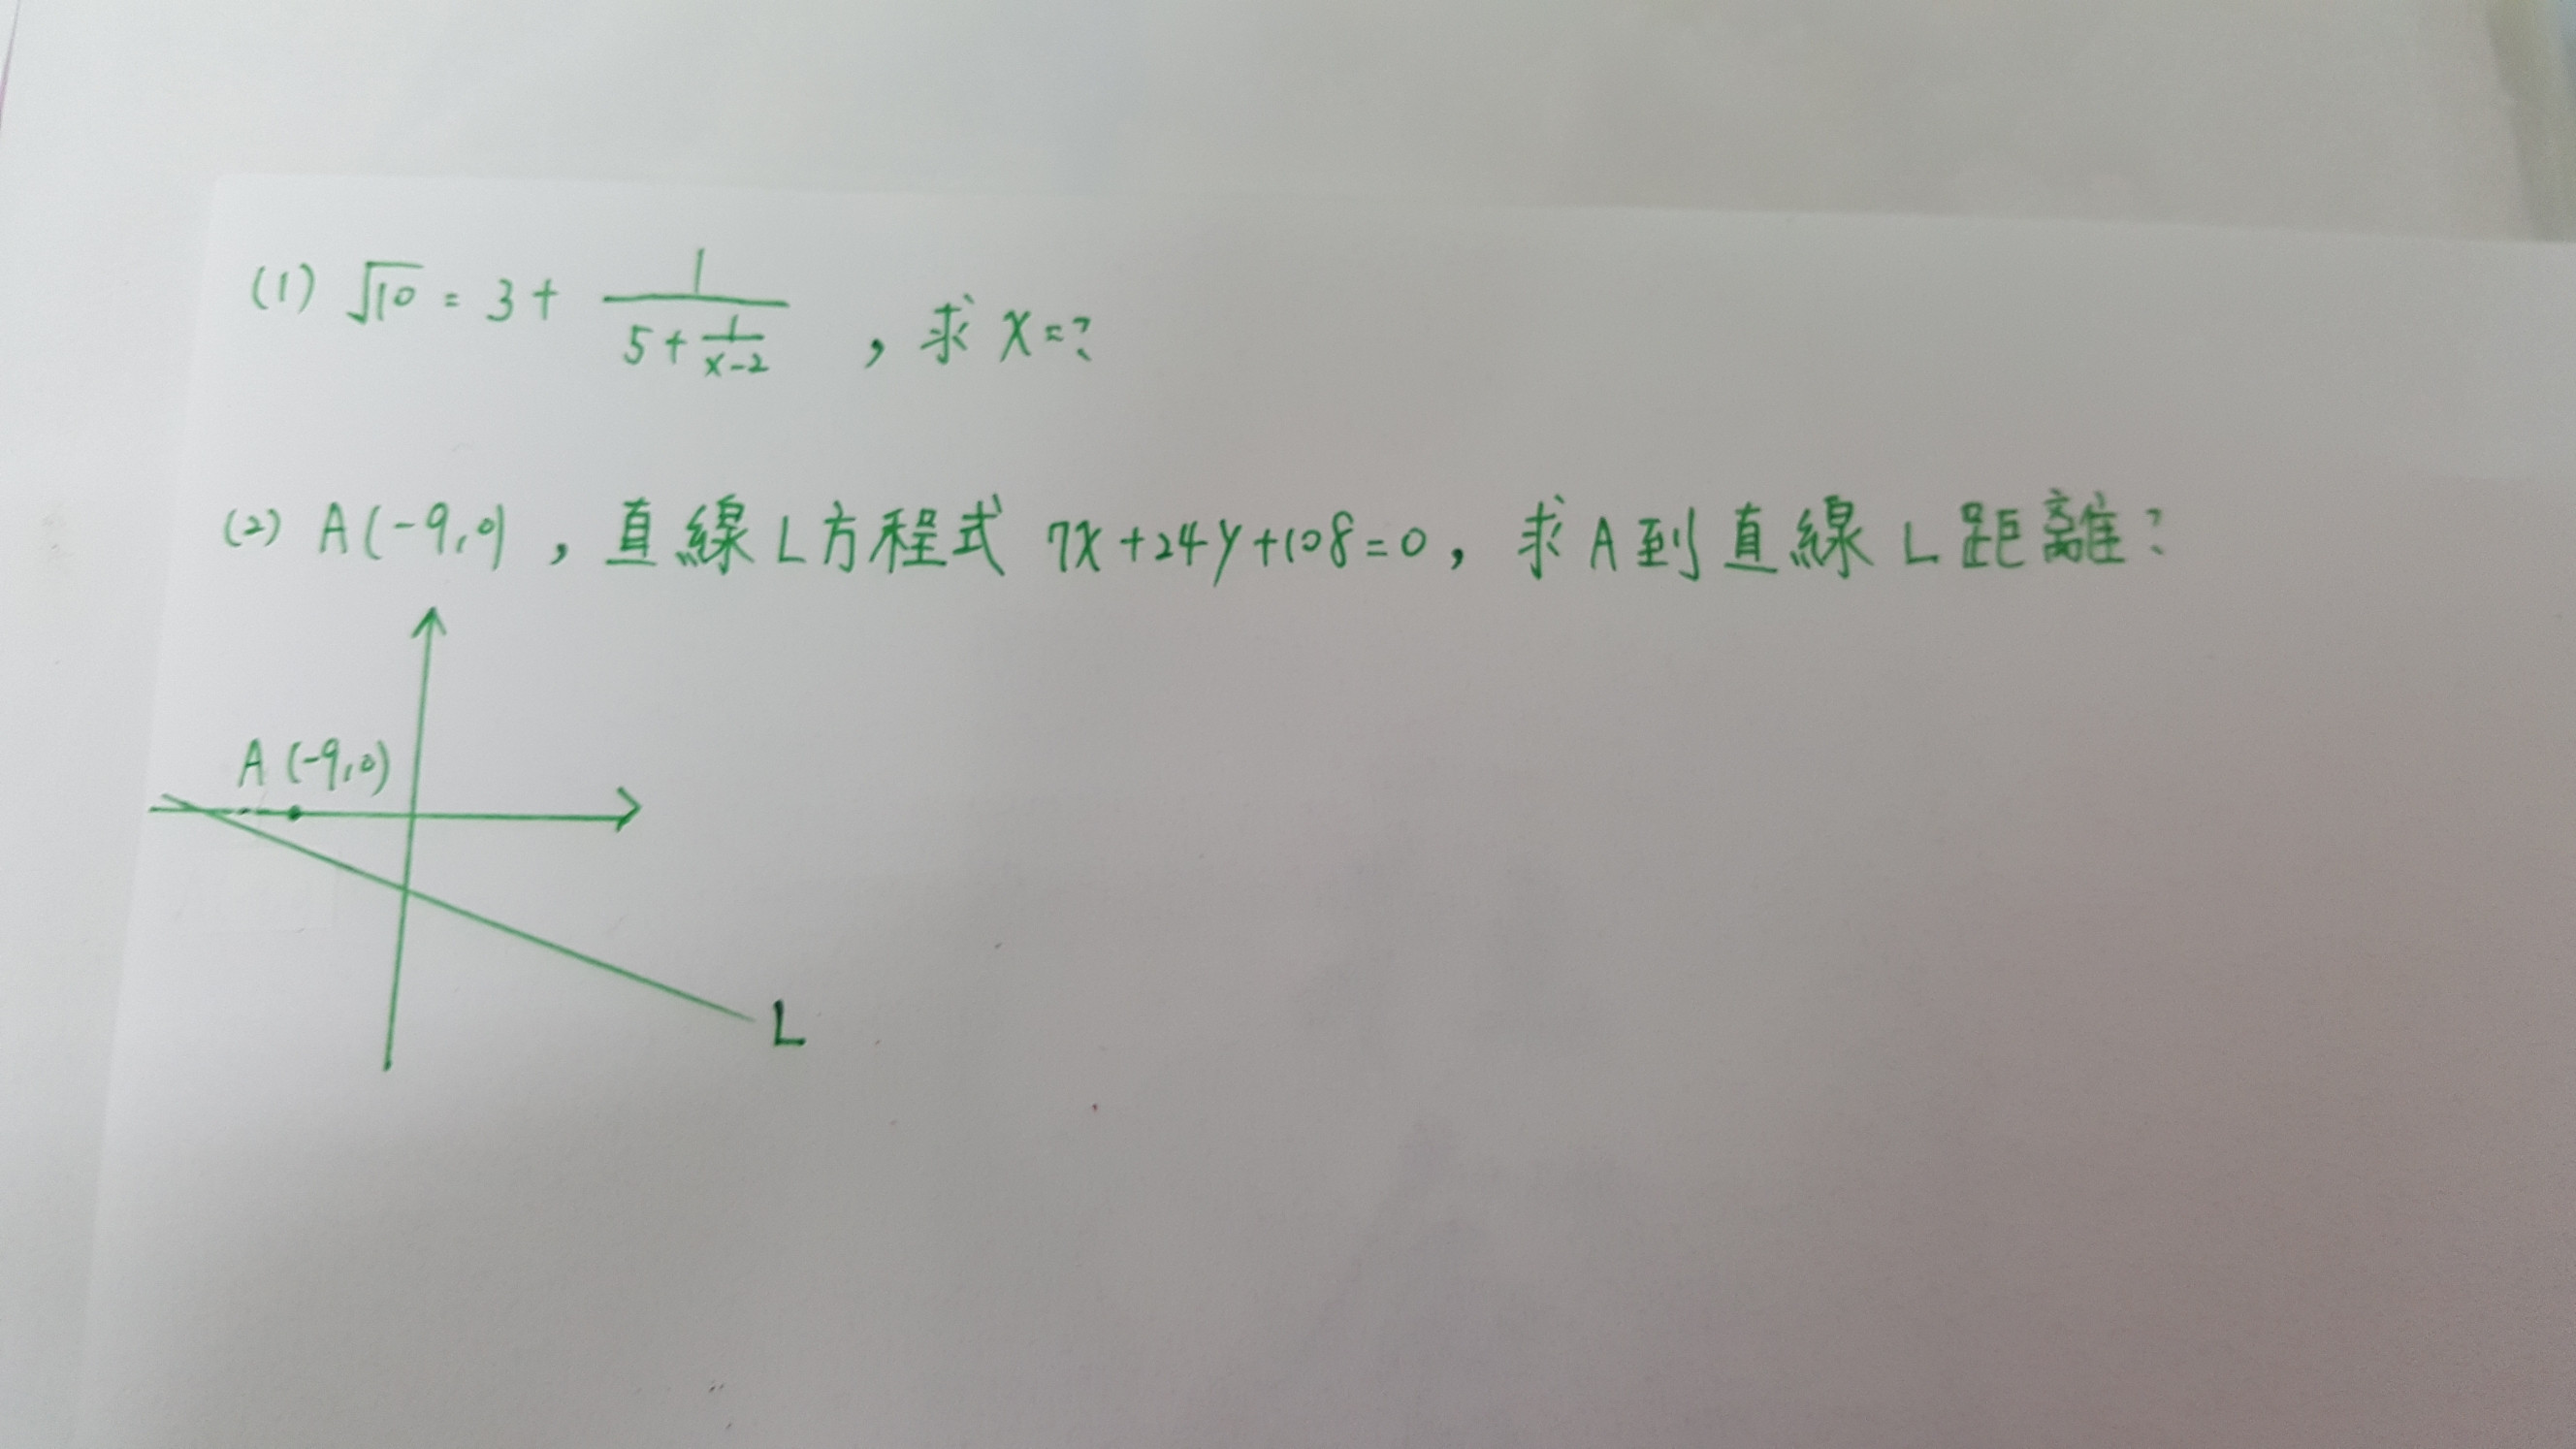 (1) √10 = 3 + 1/(5 + 1/(x-2)) , 求 x=?
(2) A(-9,0) , 直線L方程式 7x+24y+108=0, 求A到直線L距離?
A (-9,0)
L